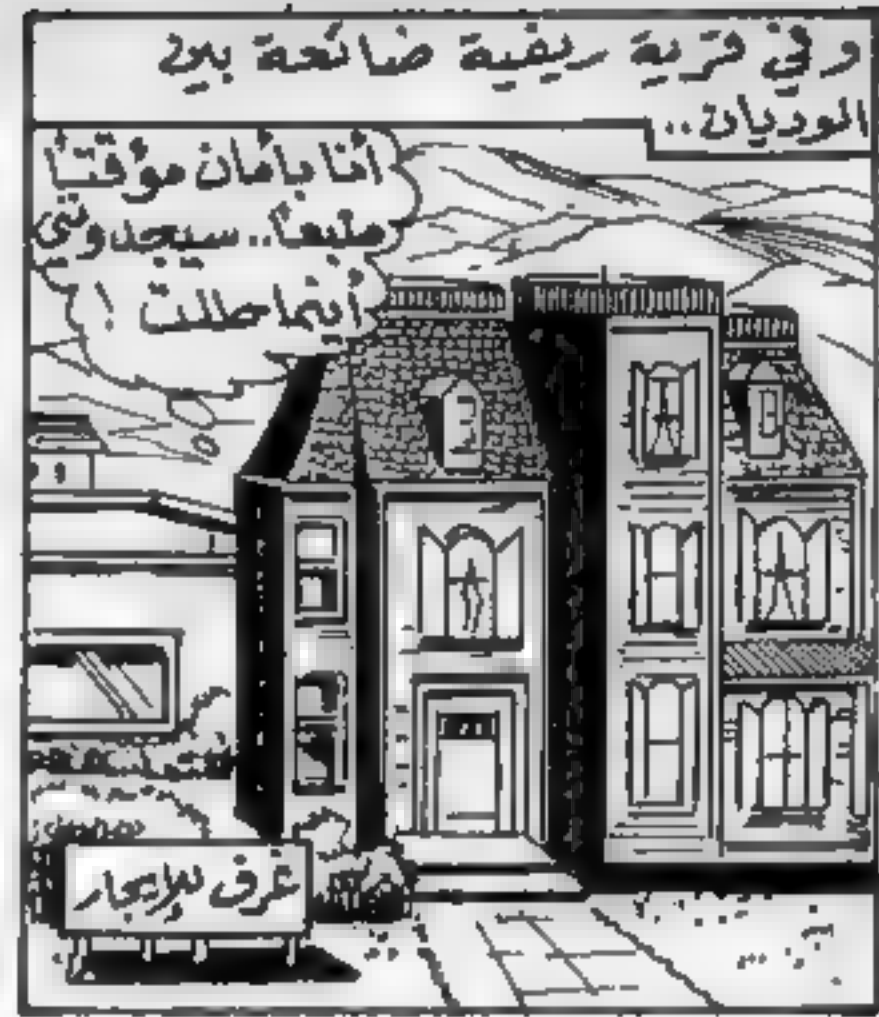 و في قرية ريفية ضائعة بين
الوديان..
أنا بأمان مؤقتاً
طبعاً.. سيجدونني
أينما طلت !
غرف للإيجار